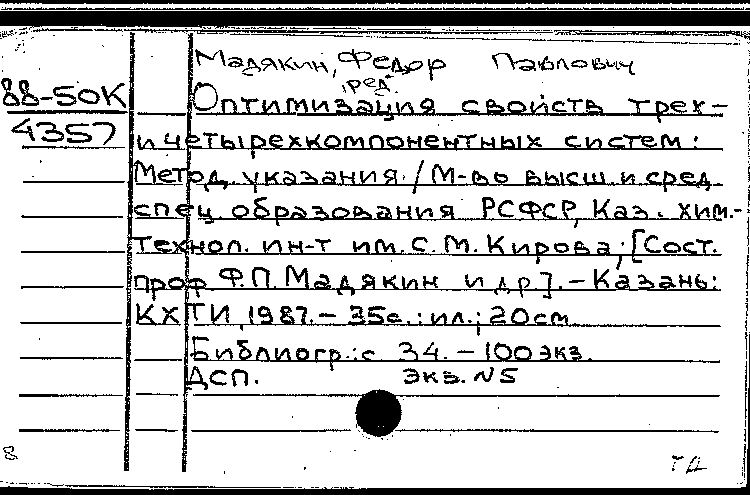 Мадякин, Федор Павлович
, ред.
88-50К
4357
Оптимизация свойств трех-
и четырехкомпонентных систем:
Метод. указания / М-во высш. и сред.
спец. образования РСФСР, Каз. хим.-
технол. ин-т им. С. М. Кирова; [Сост.
проф. Ф. П. Мадякин и др]. - Казань:
КХТИ, 1987. - 35с.: ил.; 20см
Библиогр.: с. 34. - 100экз.
ДСП. экз. №5
8
ТД